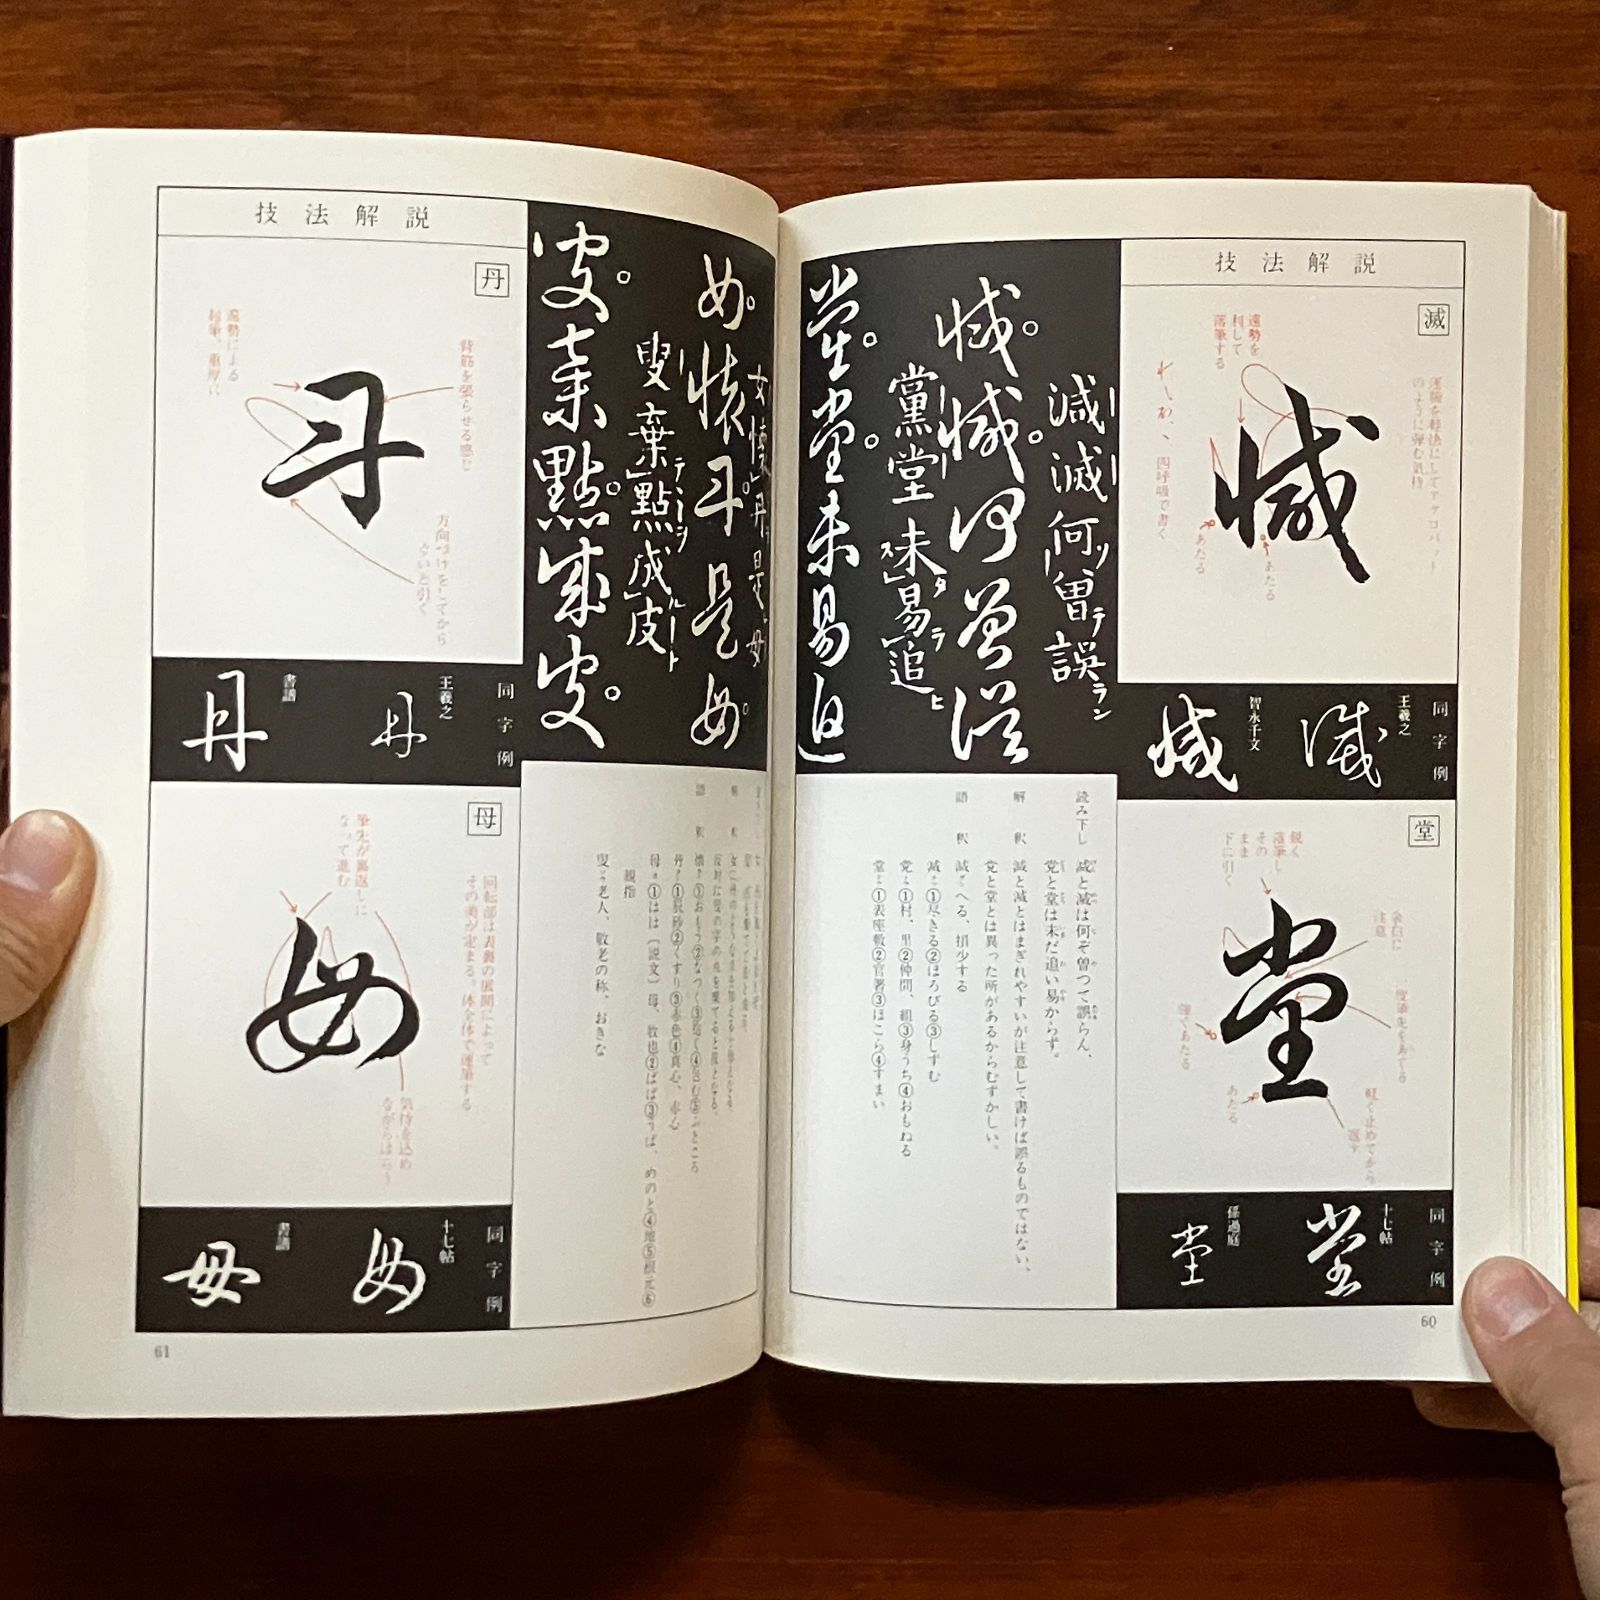 技法解説
滅
遠勢を
利して
落筆する
運腕を軽決にしてアクロバット
のように弾む気持
四呼吸で書く
あたる
あたる
同字例
王羲之
智永千文
堂
鋭く
落筆し
その
まま
下に引く
余白に
注意
一度筆先をあてる
強くあたる
あたる
軽く止めてから
返す
同字例
十七帖
孫過庭
減滅何曽誤
ソテラン
黨堂未易追
タラヒ
読み下し
減と滅は何ぞ曽つて誤らん、
党と堂は未だ追い易からず。
解釈
減と滅とはまぎれやすいが注意して書けば誤るものではない、
党と堂とは異った所があるからむずかしい。
語釈
減 へる、損少する
滅 ①尽きる②ほろびる③しずむ
党 ①村、里②仲間、組③身うち④おもねる
堂 ①表座敷②官署③ほこら④すまい
60
女懐丹是母
叟棄點成皮
語釈
懐 ①おもう②なつく③抱く④包む⑤ふところ
丹 ①辰砂②くすり③赤色④真心、赤心
母 ①はは〔説文〕母、牧也②ばば③うば、めのと④地⑤根元⑥
親指
叟 老人、敬老の称、おきな
技法解説
丹
背筋を張らせる感じ
遠勢による
起筆、重厚に
方向づけをしてから
ぐいと引く
同字例
王羲之
書譜
母
筆先が裏返しに
なって進む
回転部は表裏の展開によって
その美が定まる。体全体で運筆する
気持を込め
ながらはらう
同字例
十七帖
書譜
61